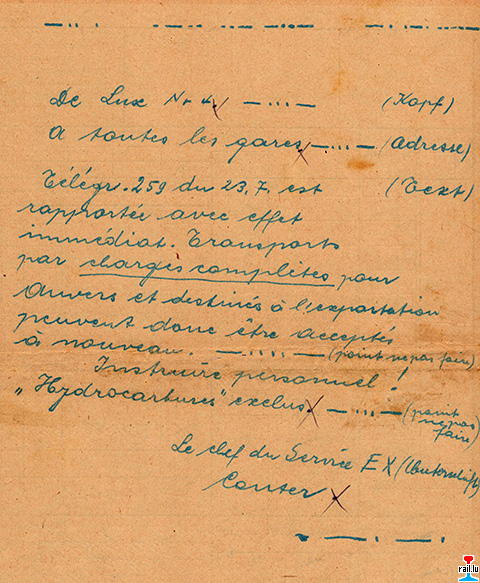 De Lux Nr 4 — ... — (Kopf)
A toutes les gares — ... — (Adresse)
Télégr. 259 du 23.7. est (Text)
rapportée avec effet
immédiat. Transports
par charges complètes pour
Anvers et destinés à l'exportation
peuvent donc être acceptés
à nouveau. — .... — (point ne pas faire)
Instruire personnel!
„Hydrocarbures" exclus. — ... — (point
ne pas
faire)
Le chef du Service EX (Unterschrift)
Conter
rail.lu